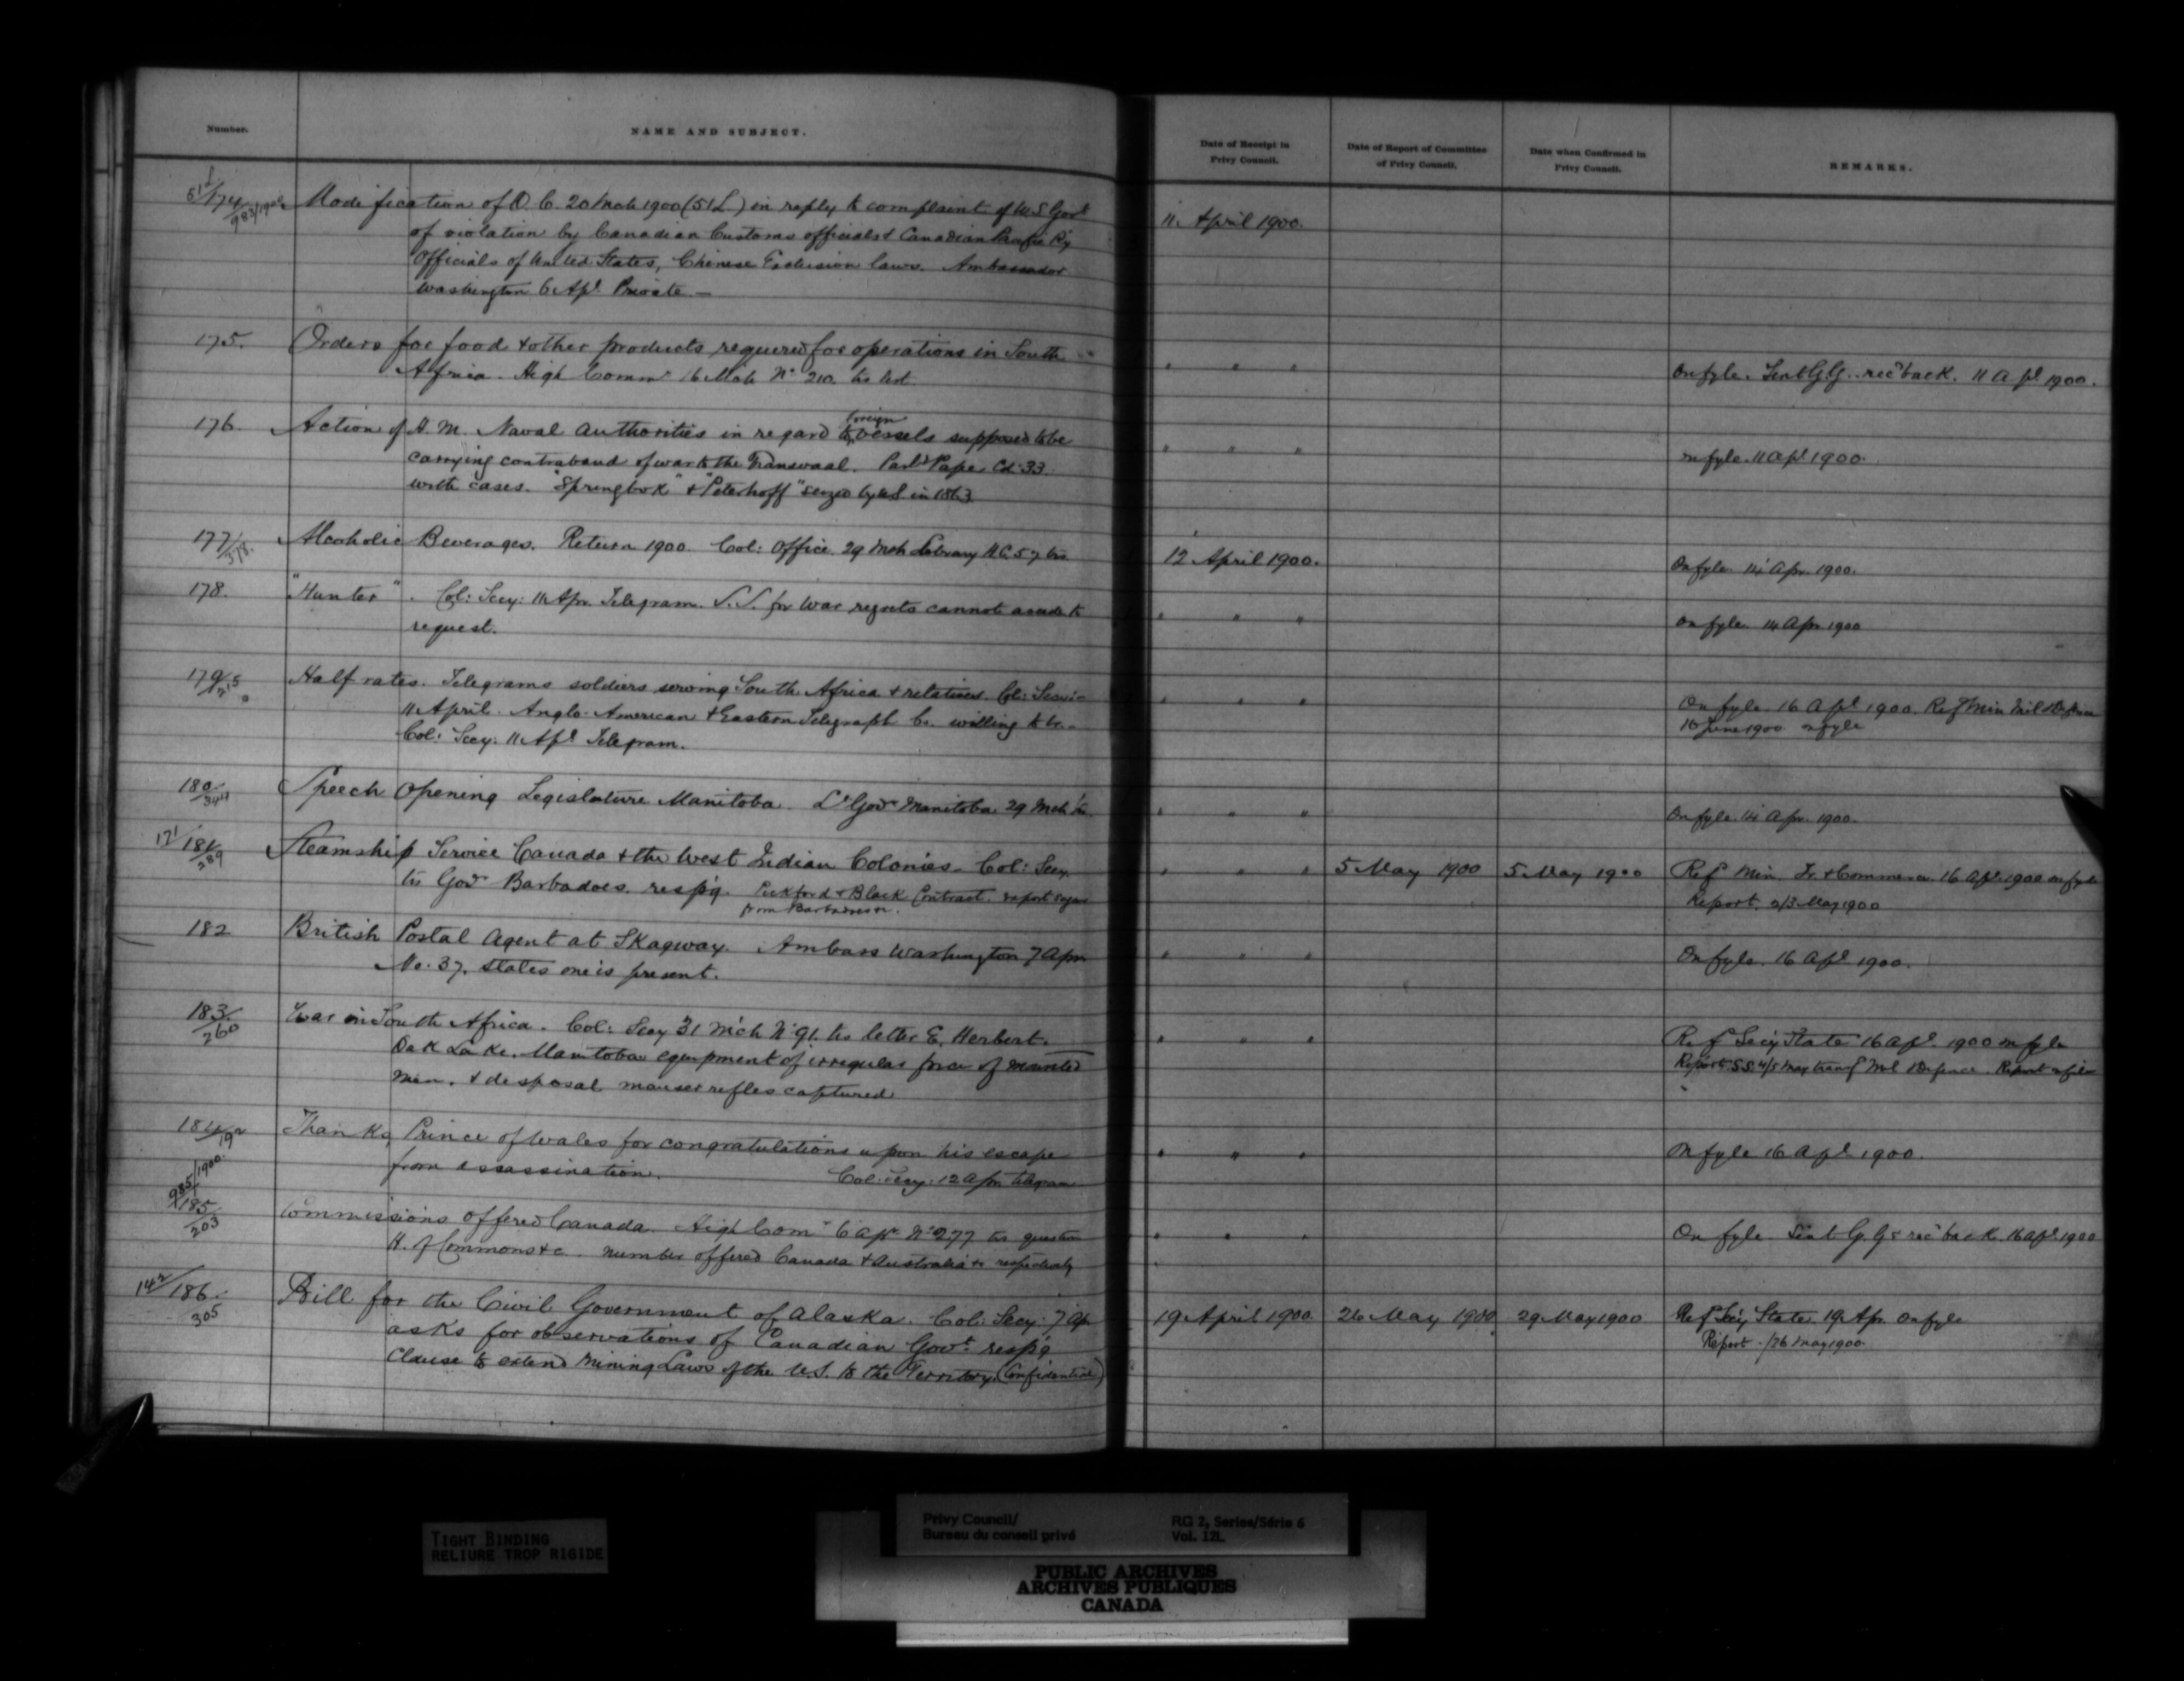 Number.
NAME AND SUBJECT.
Date of Receipt in
Privy Council.
Date of Report of Committee
of Privy Council.
Date when Confirmed in
Privy Council.
REMARKS.
51L/174/983/1900
Modification of O.C. 20 Mch 1900 (51L) in reply to complaint of U.S. Govt
of violation by Canadian Customs officials & Canadian Pacific Ry
Officials of United States, Chinese Exclusion laws. Ambassador
Washington 6 Apl Private —
11 April 1900.
175.
Orders for food & other products required for operations in South
Africa. High Commr 16 Mch No 210. trs list
" " "
On fyle. Sent G.G. recd back. 11 Apl 1900.
176.
Action of H.M. Naval Authorities in regard to foreign vessels supposed to be
carrying contraband of war to the Transvaal. Parlt Pape Cd: 33.
with cases. "Springbok" & "Peterhoff" seized by U.S. in 1863
" " "
On fyle. 11 Apl 1900.
177/378.
Alcoholic Beverages. Return 1900. Col: Office. 29 Mch Library H.C. 57 trs
12 April 1900.
On fyle. 14 Apr. 1900.
178.
"Hunter". Col: Secy: 11 Apr. Telegram. S.S. for War regrets cannot accede to
request.
" " "
On fyle. 14 Apr 1900
179
Half rates. Telegrams soldiers serving South Africa & relatives Col: Secy:-
11 April. Anglo-American & Eastern Telegraph Co. willing to
Col: Secy. 11 Apl Telegram.
" " "
On fyle 16 Apl 1900. Ref Min Mil & Defence
June 1900 on fyle
180/344
Speech Opening Legislature Manitoba. Lt Govr Manitoba 29 Mch trs
" " "
On fyle. 14 Apr. 1900.
171/181/289
Steamship Service Canada & the West Indian Colonies - Col: Secy.
trs Govr Barbadoes. resp'g. Pickford & Black Contract. export sugar
from Barbadoes
" " "
5 May 1900
5 May 1900
Ref Min. Tr. & Commerce. 16 Apl. 1900 on fyle
Report. 2/3 May 1900
182
British Postal Agent at Skagway. Ambass Washington 7 Apr.
No. 37. states one is present.
" " "
On fyle. 16 Apl 1900.
183/260
War in South Africa. Col: Secy 31 Mch No 91. trs letter E. Herbert.
Oak Lake. Manitoba equipment of irregular force of mounted
men. & disposal mauser rifles captured
" " "
Ref Secy State 16 Apl. 1900 on fyle
Report S.S. 4/5 May transf Mil & Defence. Report on file
184/192
Thanks, Prince of Wales for congratulations upon his escape
from assassination. Col: Secy: 12 Apr. telegram
" " "
On fyle 16 Apl 1900.
985/1900
185/203
Commissions offered Canada. High Comr 6 Apr. No 277 trs question
H. of Commons &c. number offered Canada & Australia respectively
" " "
On fyle. Sent G.G. & recd back. 16 Apl 1900
142/186./305
Bill for the Civil Government of Alaska. Col: Secy: 7 Ap
asks for observations of Canadian Govt resp'g
Clause to extend Mining Laws of the U.S. to the Territory. (Confidential)
19 April 1900.
26 May 1900
29 May 1900
Ref Secy State 19 Apr. On fyle
Report. /26 May 1900.
TIGHT BINDING
RELIURE TROP RIGIDE
Privy Council/
Bureau du conseil privé
RG 2, Series/Série 6
Vol. 121
PUBLIC ARCHIVES
ARCHIVES PUBLIQUES
CANADA